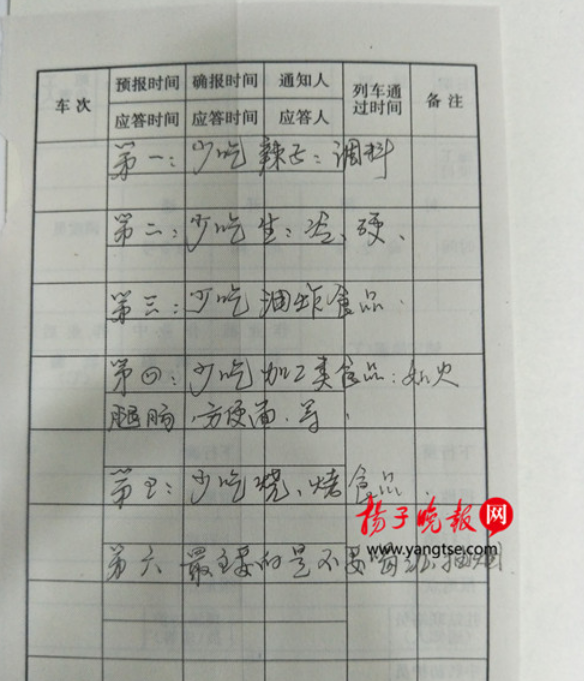 车次 预报时间 确报时间 通知人 列车通过时间 备注
应答时间 应答时间 应答人
第一：少吃辣子：调料
第二：少吃生：冷、硬、
第三：少吃油炸食品.
第四：少吃加工类食品：如火
腿肠.方便面.等.
第五：少吃烧、烤食品.
扬子晚报网
www.yangtse.com
第六 最主要的是不要喝酒.抽烟